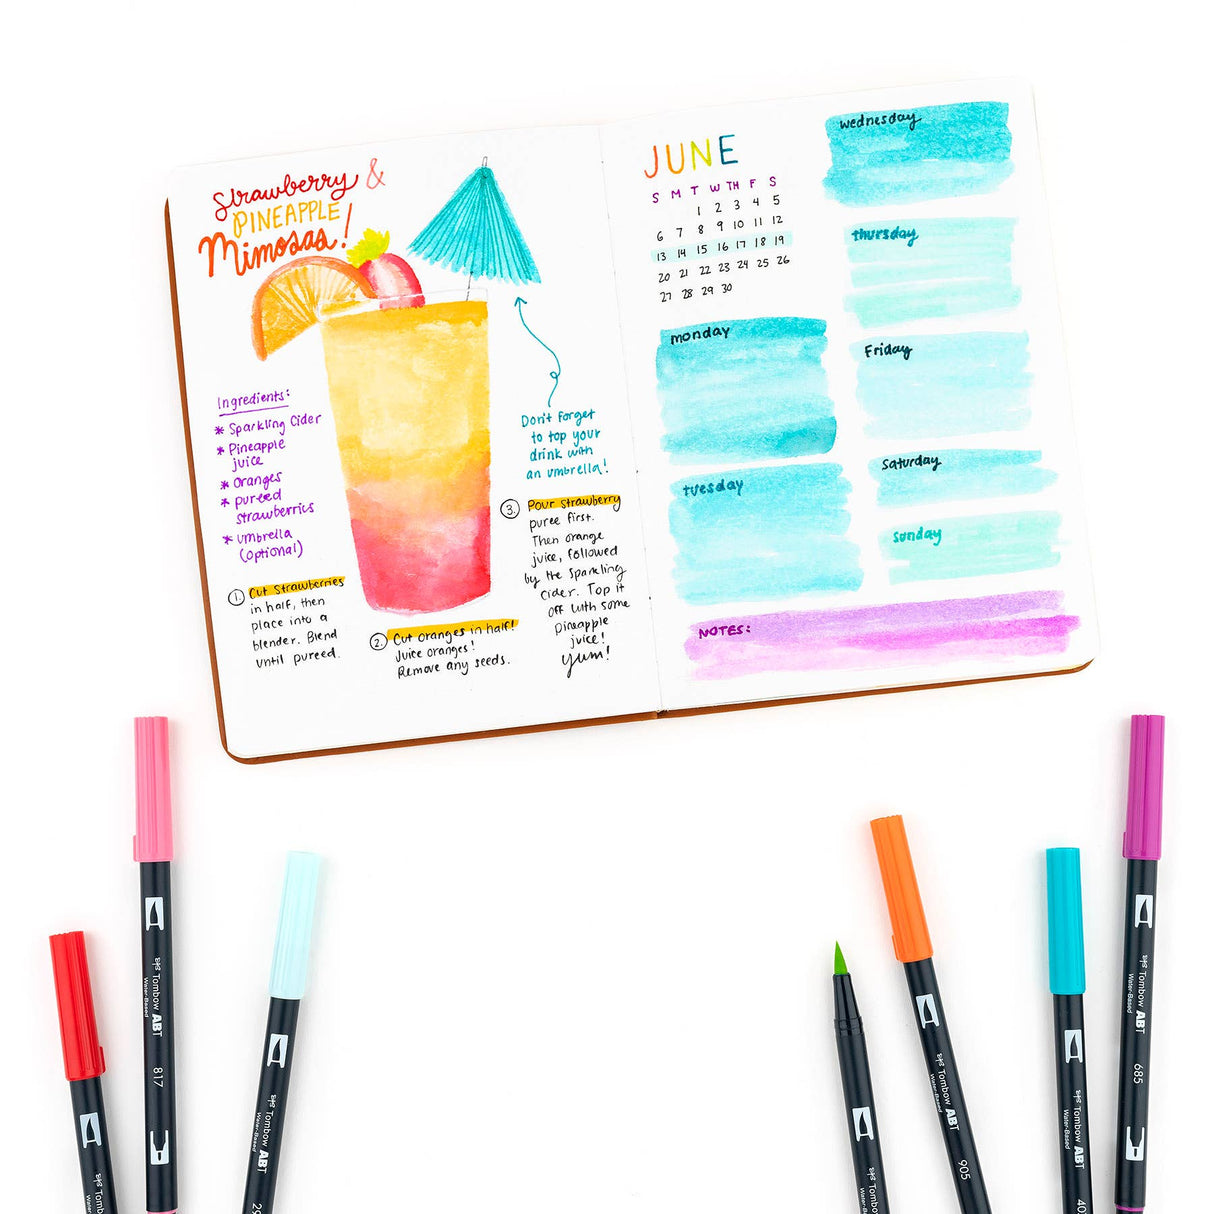 Strawberry &
PINEAPPLE
Mimosas!
Ingredients:
* Sparkling Cider
* Pineapple
juice
* oranges
* pureed
strawberries
* umbrella
(optional)
1. Cut Strawberries
in half, then
place into a
blender. Blend
until pureed.
2. Cut oranges in half!
Juice oranges!
Remove any seeds.
Don't forget
to top your
drink with
an umbrella!
3. Pour strawberry
puree first.
Then orange
juice, followed
by the sparkling
cider. Top it
off with some
pineapple
juice!
yum!
JUNE
S M T W TH F S
1 2 3 4 5
6 7 8 9 10 11 12
13 14 15 16 17 18 19
20 21 22 23 24 25 26
27 28 29 30
monday
tuesday
wednesday
thursday
Friday
saturday
sunday
NOTES:
Tombow ABT
Water-Based
817
Tombow ABT
29
Tombow ABT
Water-Based
905
Tombow ABT
Water-Based
40
Tombow ABT
Water-Based
685